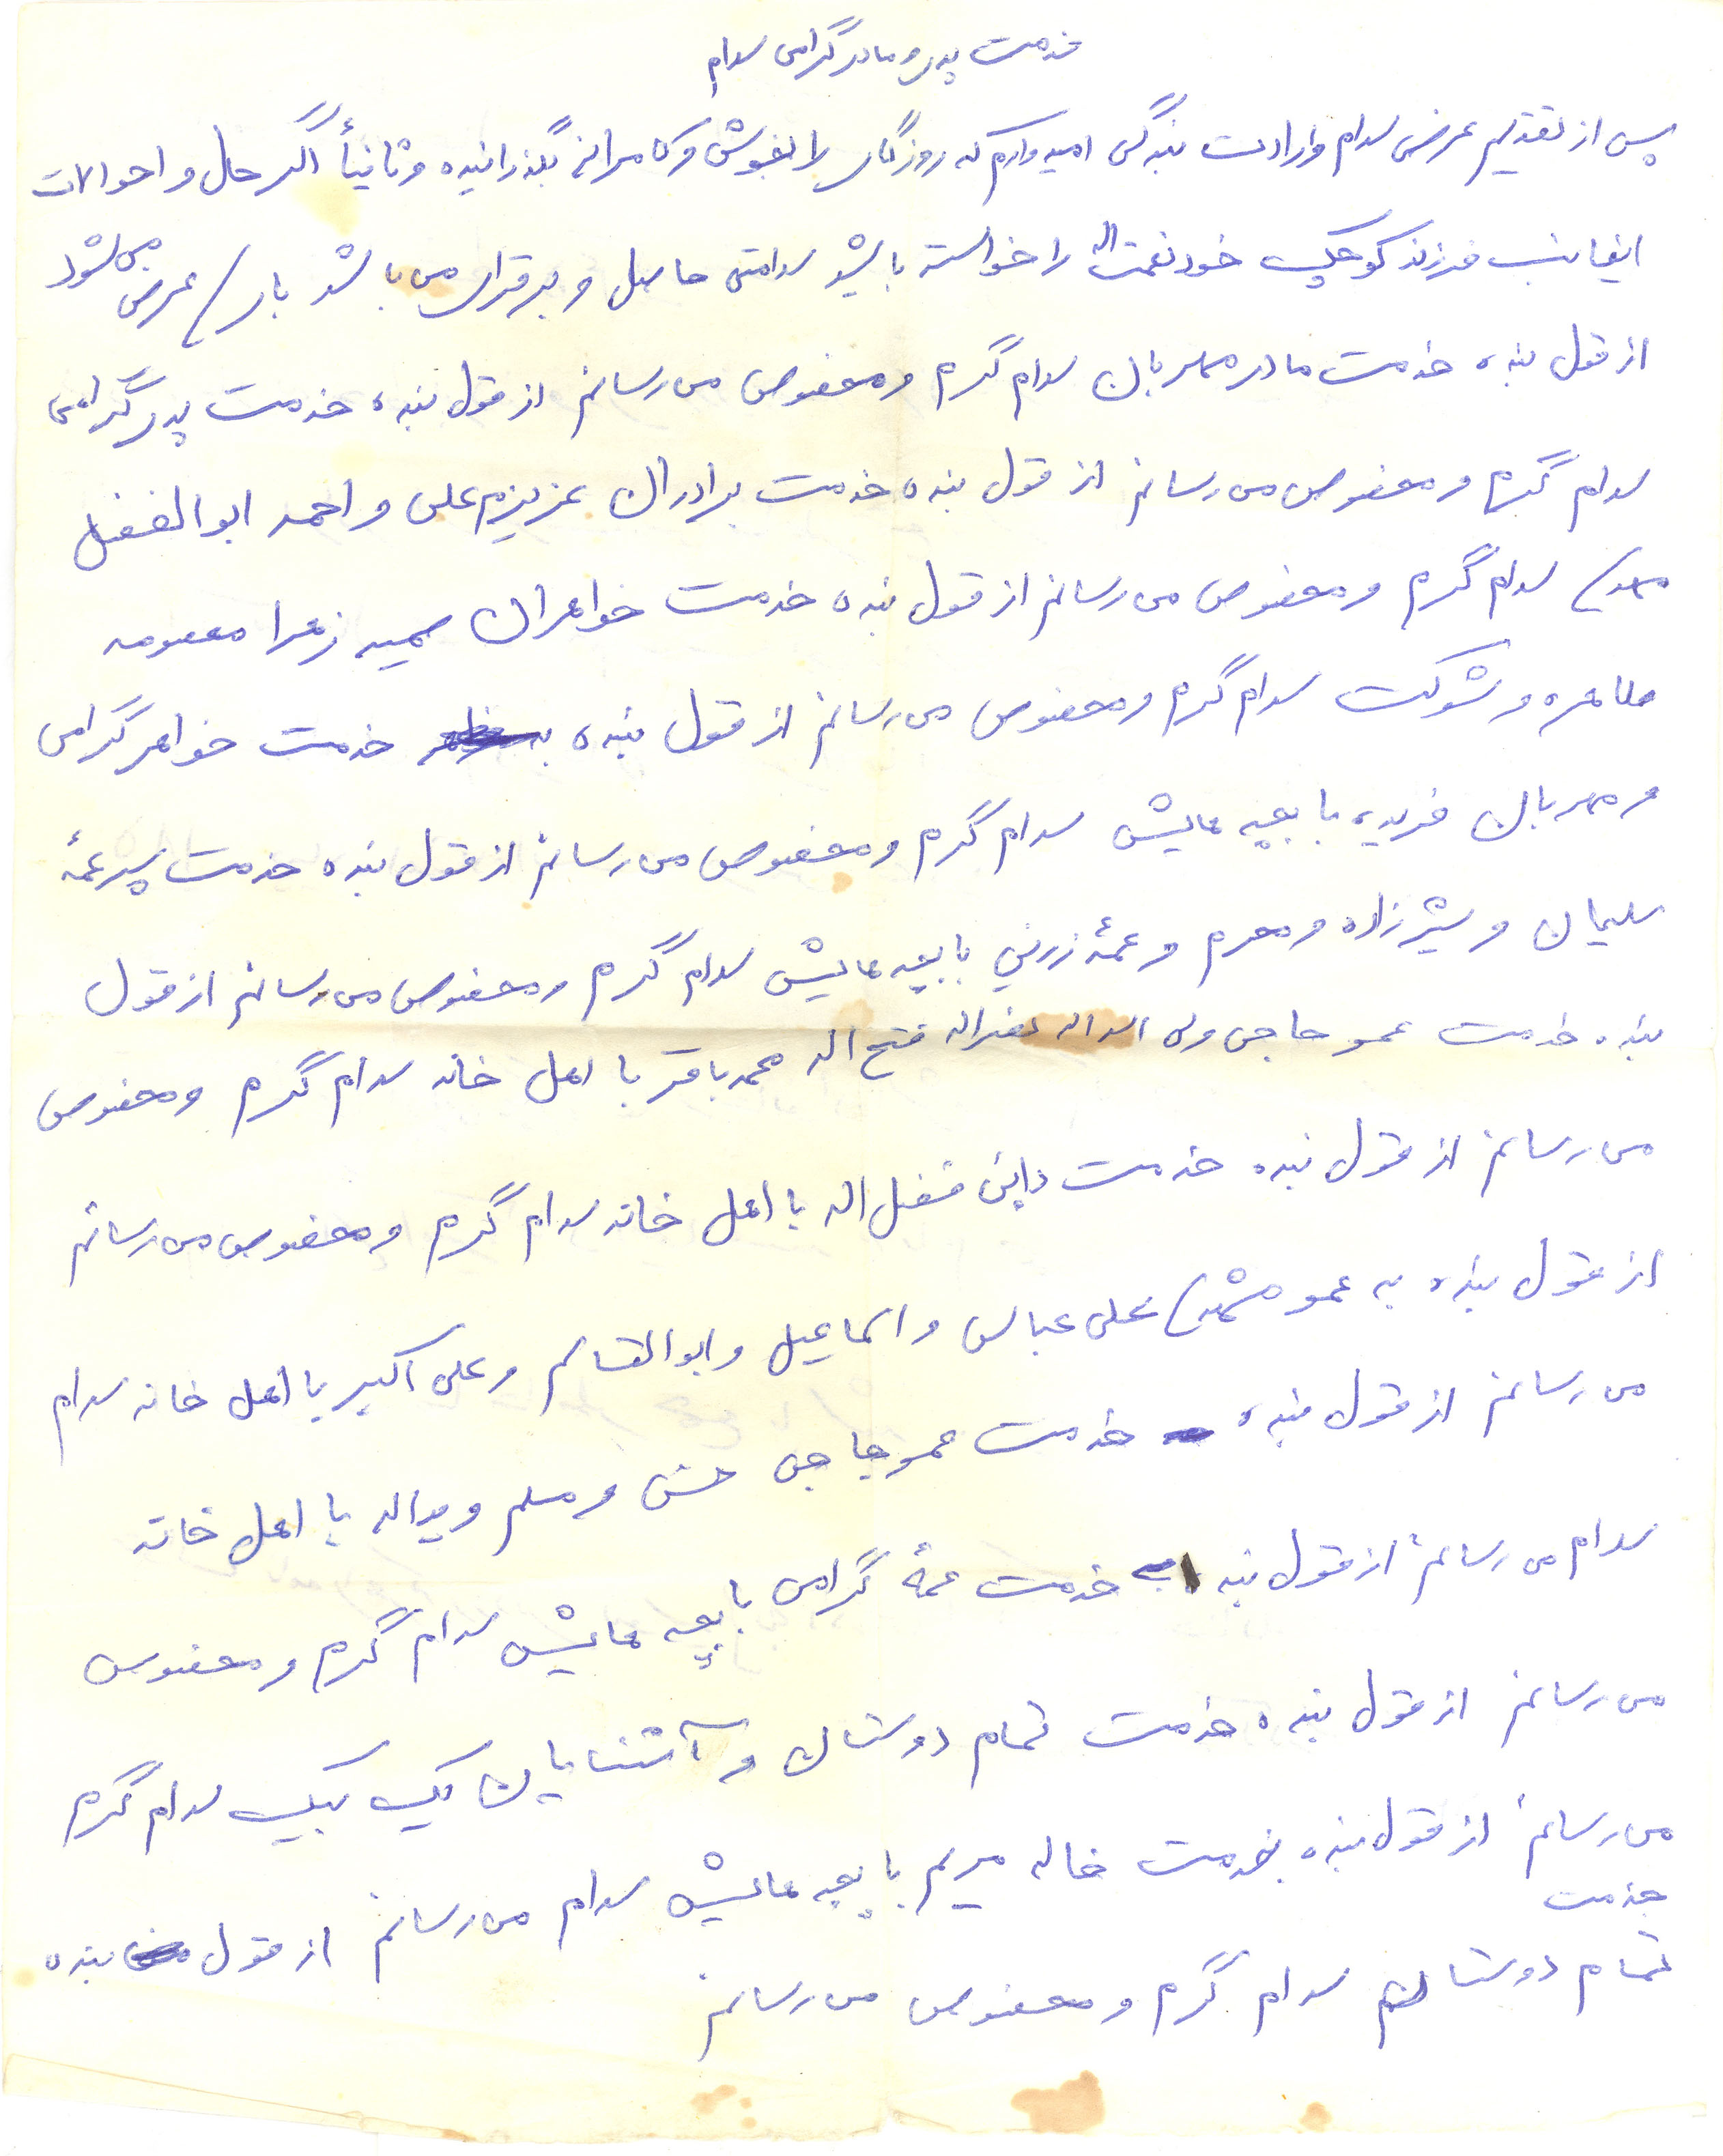 خدمت پدر و مادر گرامی سلام
پس از تقدیم عرض سلام و ارادت بندگی امیدوارم که روزگار را بخوش و کامرانی بگذرانیده و ثانیأ اگر حال و احوالات
اینجانب فرزند کوچک خود نعمت اله را خواسته باشید سلامتی حاصل و برقرار می باشد باری عرض می شود
از قول بنده خدمت مادر مهربان سلام گرم و مخصوص می رسانم از قول بنده خدمت پدر گرامی
سلام گرم و مخصوص می رسانم از قول بنده خدمت برادران عزیزم علی و احمد ابوالفضل
مهدی سلام گرم و مخصوص می رسانم از قول بنده خدمت خواهران سمیه زهرا معصومه
طاهره و شوکت سلام گرم و مخصوص می رسانم از قول بنده خدمت خواهر گرامی
و مهربان فریده با بچه هایش سلام گرم و مخصوص می رسانم از قول بنده خدمت پسر عمۀ
سلیمان و شیرزاد و محرم و عمۀ زرین با بچه هایش سلام گرم و مخصوص می رسانم از قول
بنده خدمت عمو حاجی ولی اسداله فتح اله محمد باقر با اهل خانه سلام گرم و مخصوص
می رسانم از قول بنده خدمت دایی فضل اله با اهل خانه سلام گرم و مخصوص می رسانم
از قول بنده به عمو مشهدی علی عباس و اسماعیل و ابوالقاسم و علی اکبر با اهل خانه سلام
می رسانم از قول بنده خدمت عمو حاجی حسن و مسلم و یداله با اهل خانه
سلام می رسانم از قول بنده خدمت عمۀ گرامی با بچه هایش سلام گرم و مخصوص
می رسانم از قول بنده خدمت تمام دوستان و آشنایان یک بیک سلام گرم
می رسانم از قول بنده بخدمت خاله مریم با بچه هایش سلام می رسانم از قول بنده
بخدمت
تمام دوستانم سلام گرم و مخصوص می رسانم